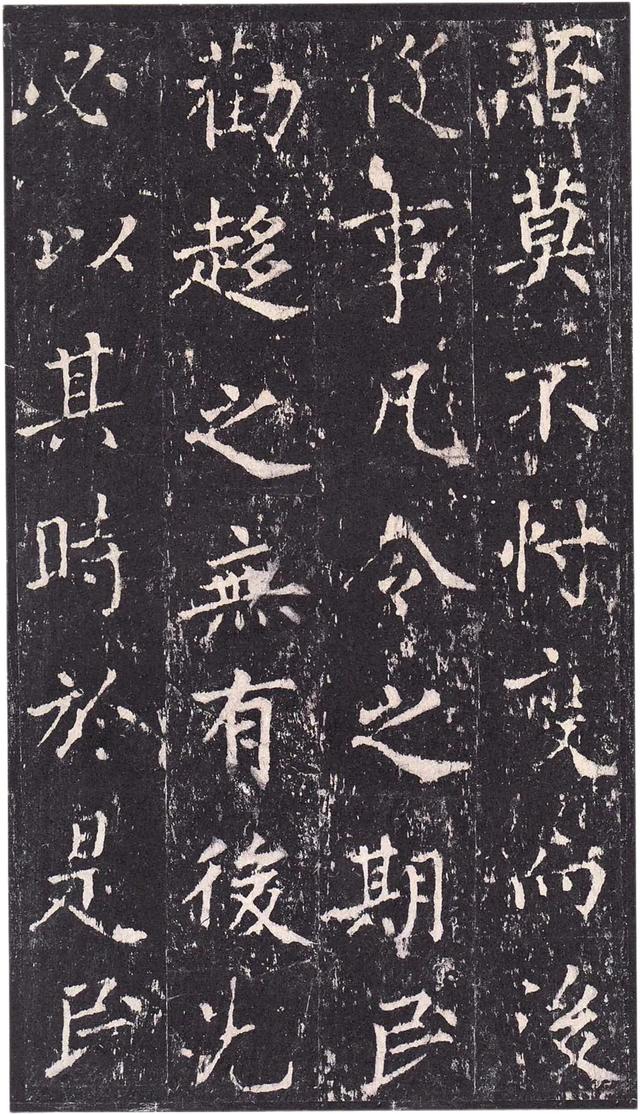 否莫不忖度而後
從事凡令之期民
勸趍之無有後先
必以其時於是民